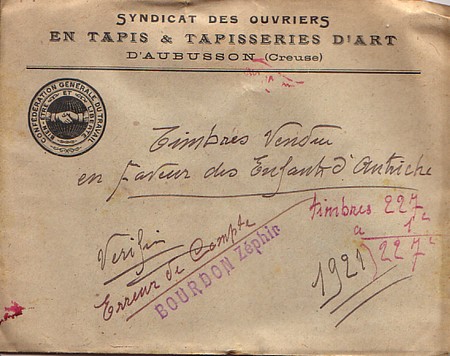 SYNDICAT DES OUVRIERS
EN TAPIS & TAPISSERIES D'ART
D'AUBUSSON (Creuse)
CONFÉDÉRATION GÉNÉRALE DU TRAVAIL
BIEN-ÊTRE ET LIBERTÉ
Timbres Vendu
en faveur des Enfants d'Autriche
timbres 227
a 1
227
Verifier
Erreur de Compte
BOURDON Zéphir
1921